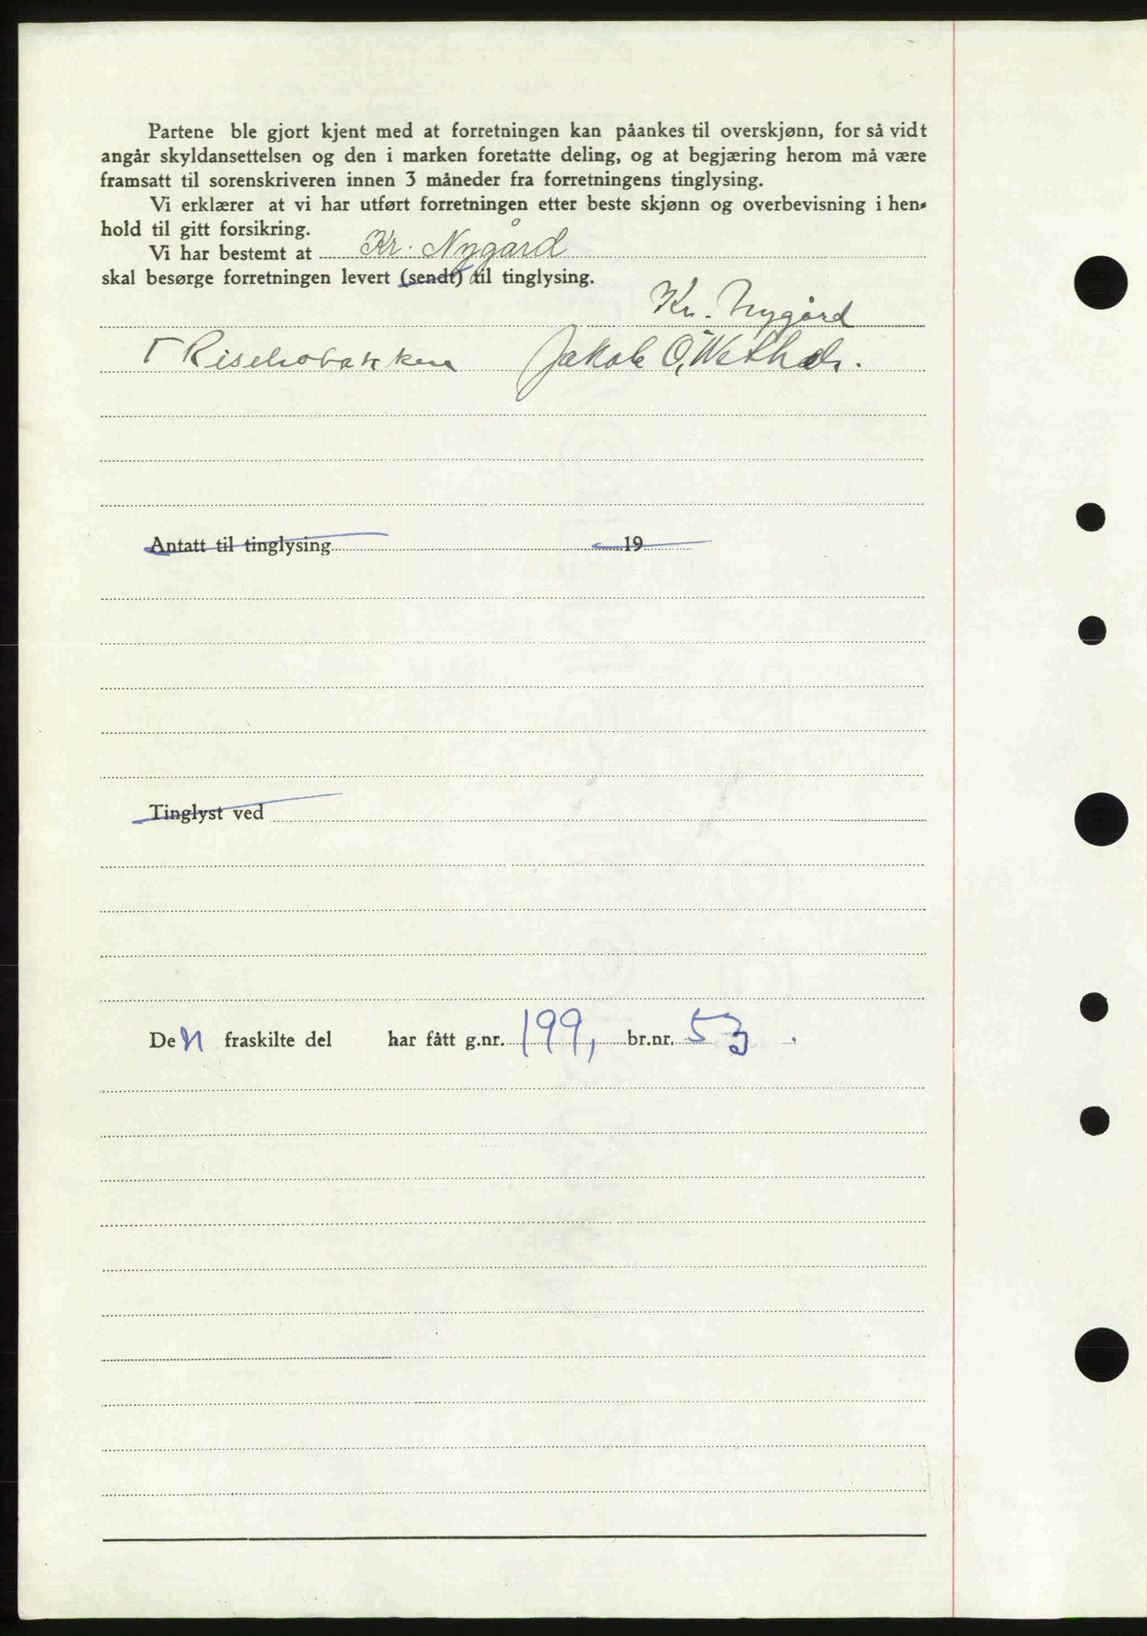 Partene ble gjort kjent med at forretningen kan påankes til overskjønn, for så vidt
angår skyldansettelsen og den i marken foretatte deling, og at begjæring herom må være
framsatt til sorenskriveren innen 3 måneder fra forretningens tinglysing.
Vi erklærer at vi har utført forretningen etter beste skjønn og overbevisning i hen-
hold til gitt forsikring.
Vi har bestemt at Kr. Nygård
skal besørge forretningen levert (sendt) til tinglysing.
Kr. Nygård
Jakob O.
Antatt til tinglysing 19
Tinglyst ved
Den fraskilte del har fått g.nr. 199, br.nr. 53.